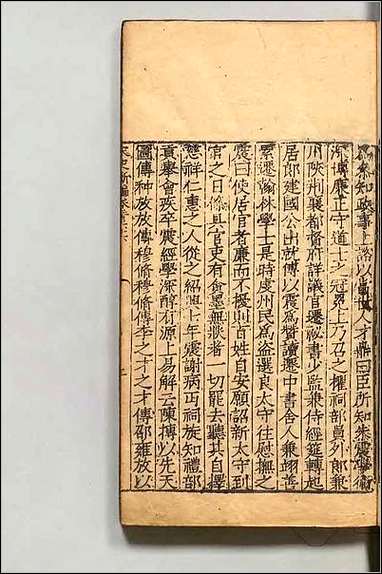 爲參知政事上諮以當世人才鼎曰臣所知朱震學術
深博廉正守道士之冠冕上乃召之擢祠部員外郎兼
川陝荆襄都督府詳議官遷祕書少監兼侍經筵轉起
居郎建國公出就傅以震爲贊讀遷中書舍人兼翊善
累遷翰林學士是時虔州民爲盗選良太守往慰撫之
震曰使居官者廉而不擾則百姓自安願詔新太守到
官之日條具官吏有貪墨無狀者一切罷去聽其自擇
慈祥仁惠之人從之紹興七年震謝病丐祠旋知禮部
貢舉會疾卒震經學深醇有源上易解云陳摶以先天
圖傳种放放傳穆脩穆脩傳李之才之才傳邵雍放以